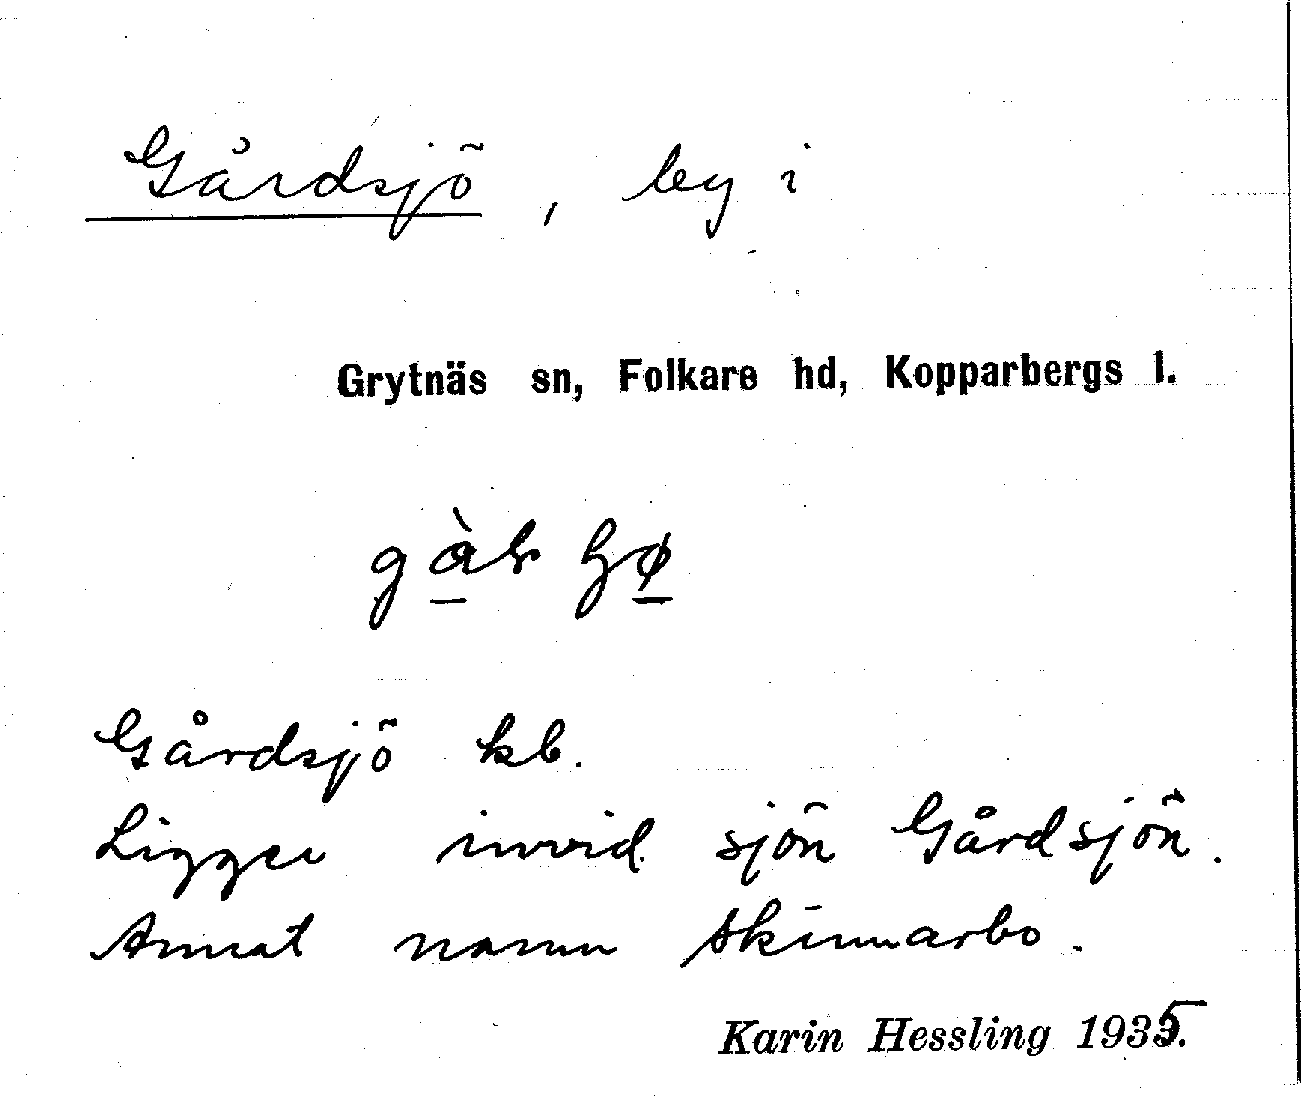 Gårdsjö, by i
Grytnäs sn, Folkare hd, Kopparbergs l.
Gårdsjö kb.
Ligger invid sjön Gårdsjön.
Annat namn Skinnarbo.
Karin Hessling 1935.